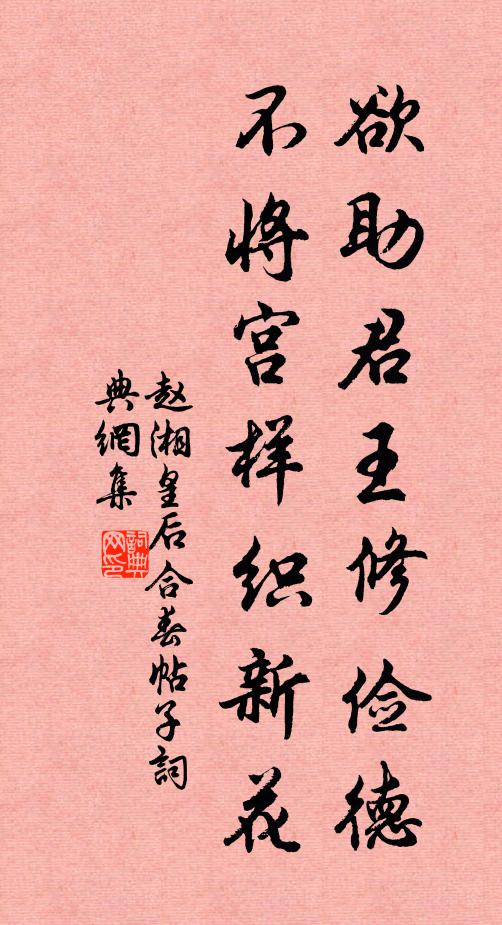 欲助君王修俭德
不将宫样织新花
赵湘皇后合春帖子詞
典網集
詞典
网印